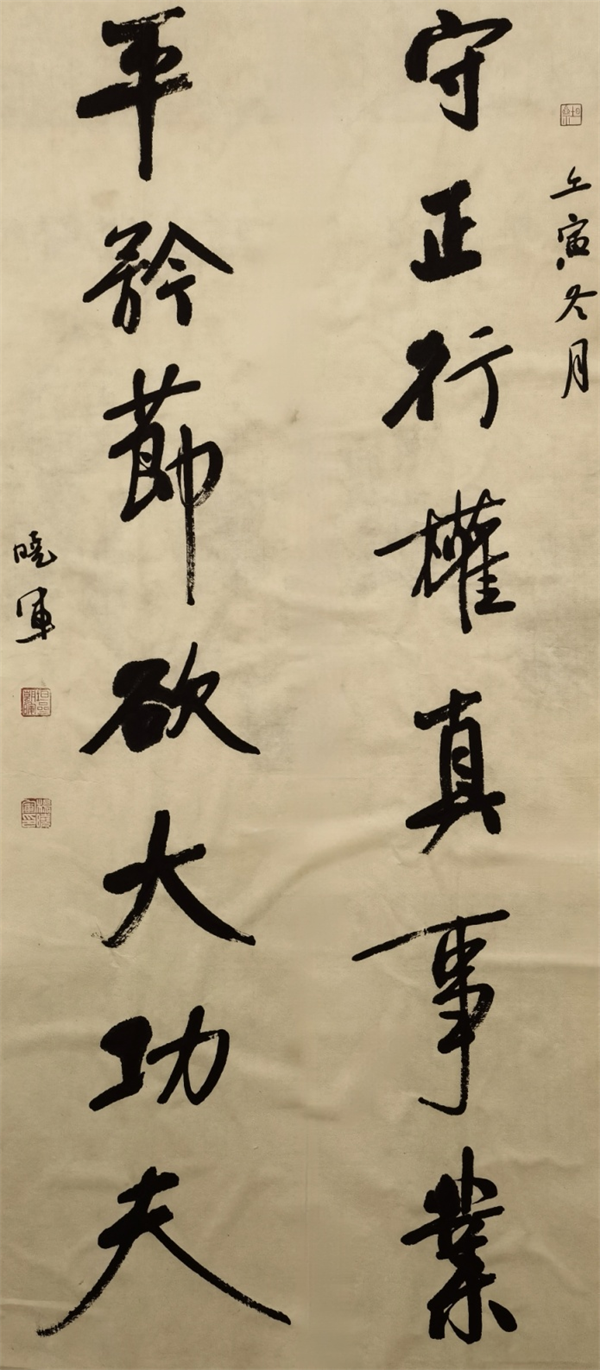 壬寅冬月
守正行權真事業
平矜節欲大功夫
曉軍